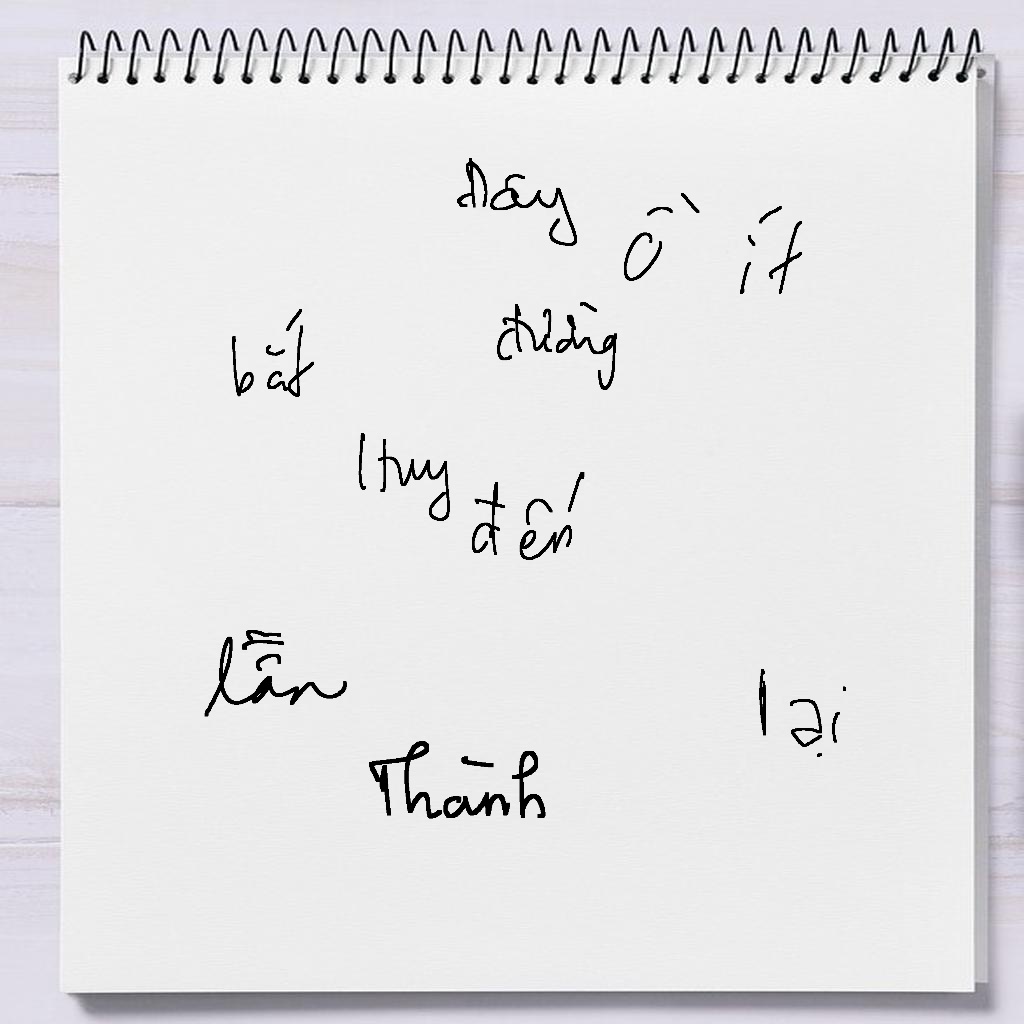 đây
ồ ít
bắt đường
đến
lẫn
lại
Thành